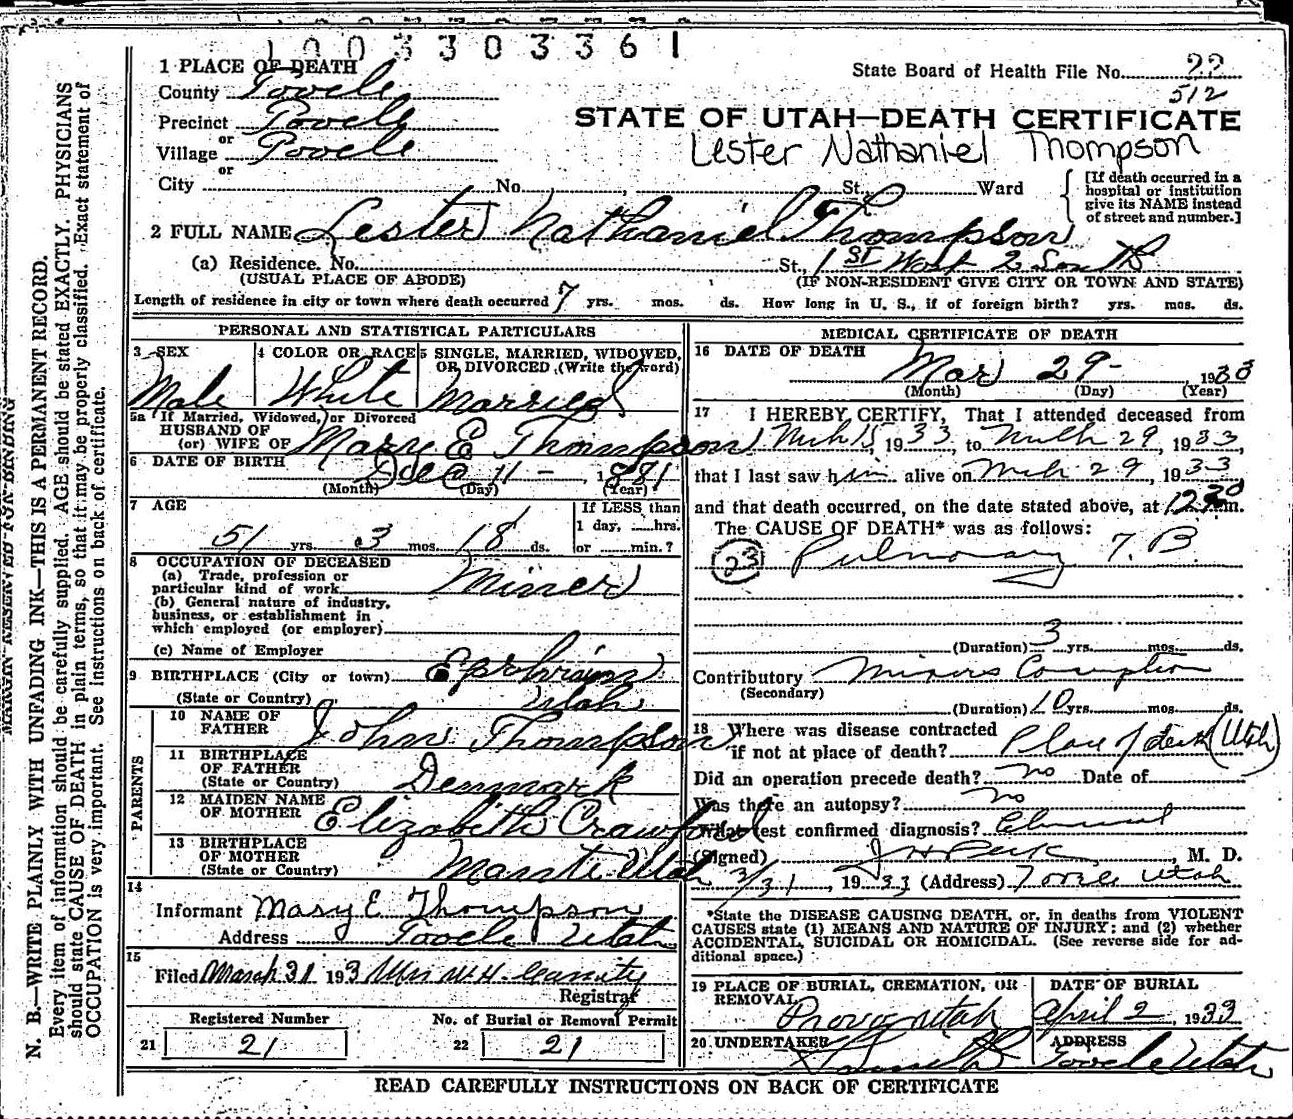 1003303361
1 PLACE OF DEATH
State Board of Health File No. 22
512
County Tooele
Precinct Tooele
or
Village Tooele
or
STATE OF UTAH—DEATH CERTIFICATE
Lester Nathaniel Thompson
City No. St. Ward
[If death occurred in a hospital or institution give its NAME instead of street and number.]
2 FULL NAME Lester Nathaniel Thompson
(a) Residence. No. St., 1st West 2 South
(USUAL PLACE OF ABODE) (IF NON-RESIDENT GIVE CITY OR TOWN AND STATE)
Length of residence in city or town where death occurred 7 yrs. mos. ds. How long in U. S., if of foreign birth? yrs. mos. ds.
PERSONAL AND STATISTICAL PARTICULARS
3 SEX 4 COLOR OR RACE 5 SINGLE, MARRIED, WIDOWED,
OR DIVORCED (Write the word)
Male White Married
5a If Married, Widowed, or Divorced
HUSBAND OF
(or) WIFE OF Mary E Thompson
6 DATE OF BIRTH Dec 11 - 1881
(Month) (Day) (Year)
7 AGE If LESS than
1 day, hrs.
51 yrs. 3 mos. 18 ds. or min.?
8 OCCUPATION OF DECEASED
(a) Trade, profession or
particular kind of work Miner
(b) General nature of industry,
business, or establishment in
which employed (or employer)
(c) Name of Employer
9 BIRTHPLACE (City or town) Ephriam
(State or Country) Utah
PARENTS
10 NAME OF
FATHER John Thompson
11 BIRTHPLACE
OF FATHER
(State or Country) Denmark
12 MAIDEN NAME
OF MOTHER Elizabeth Crawford
13 BIRTHPLACE
OF MOTHER
(State or Country) Mannti Utah
14
Informant Mary E Thompson
Address Tooele Utah
15
Filed March 31 193
Registrar
Registered Number No. of Burial or Removal Permit
21 21 22 21
MEDICAL CERTIFICATE OF DEATH
16 DATE OF DEATH
Mar 29- 1933
(Month) (Day) (Year)
17 I HEREBY CERTIFY, That I attended deceased from
Mch 15 1933, to Mch 29, 1933,
that I last saw him alive on Mch 29, 1933
and that death occurred, on the date stated above, at 12 30 m.
The CAUSE OF DEATH* was as follows:
23 Pulmonary T.B
(Duration) 3 yrs. mos. ds.
Contributory Miners Consumption
(Secondary)
(Duration) 10 yrs. mos. ds.
18 Where was disease contracted
if not at place of death? Place of death (Utah)
Did an operation precede death? no Date of
Was there an autopsy? no
What test confirmed diagnosis? Clinical
(Signed) J H Peck, M. D.
3/31, 1933 (Address) Tooele Utah
*State the DISEASE CAUSING DEATH, or, in deaths from VIOLENT
CAUSES state (1) MEANS AND NATURE OF INJURY; and (2) whether
ACCIDENTAL, SUICIDAL OR HOMICIDAL. (See reverse side for ad-
ditional space.)
19 PLACE OF BURIAL, CREMATION, OR
REMOVAL
Provo, Utah
DATE OF BURIAL
April 2 1933
20 UNDERTAKER
ADDRESS
Tooele Utah
READ CAREFULLY INSTRUCTIONS ON BACK OF CERTIFICATE
MARGIN RESERVED FOR BINDING
N. B.—WRITE PLAINLY WITH UNFADING INK—THIS IS A PERMANENT RECORD.
Every item of information should be carefully supplied. AGE should be stated EXACTLY. PHYSICIANS
should state CAUSE OF DEATH in plain terms, so that it may be properly classified. Exact statement of
OCCUPATION is very important. See instructions on back of certificate.